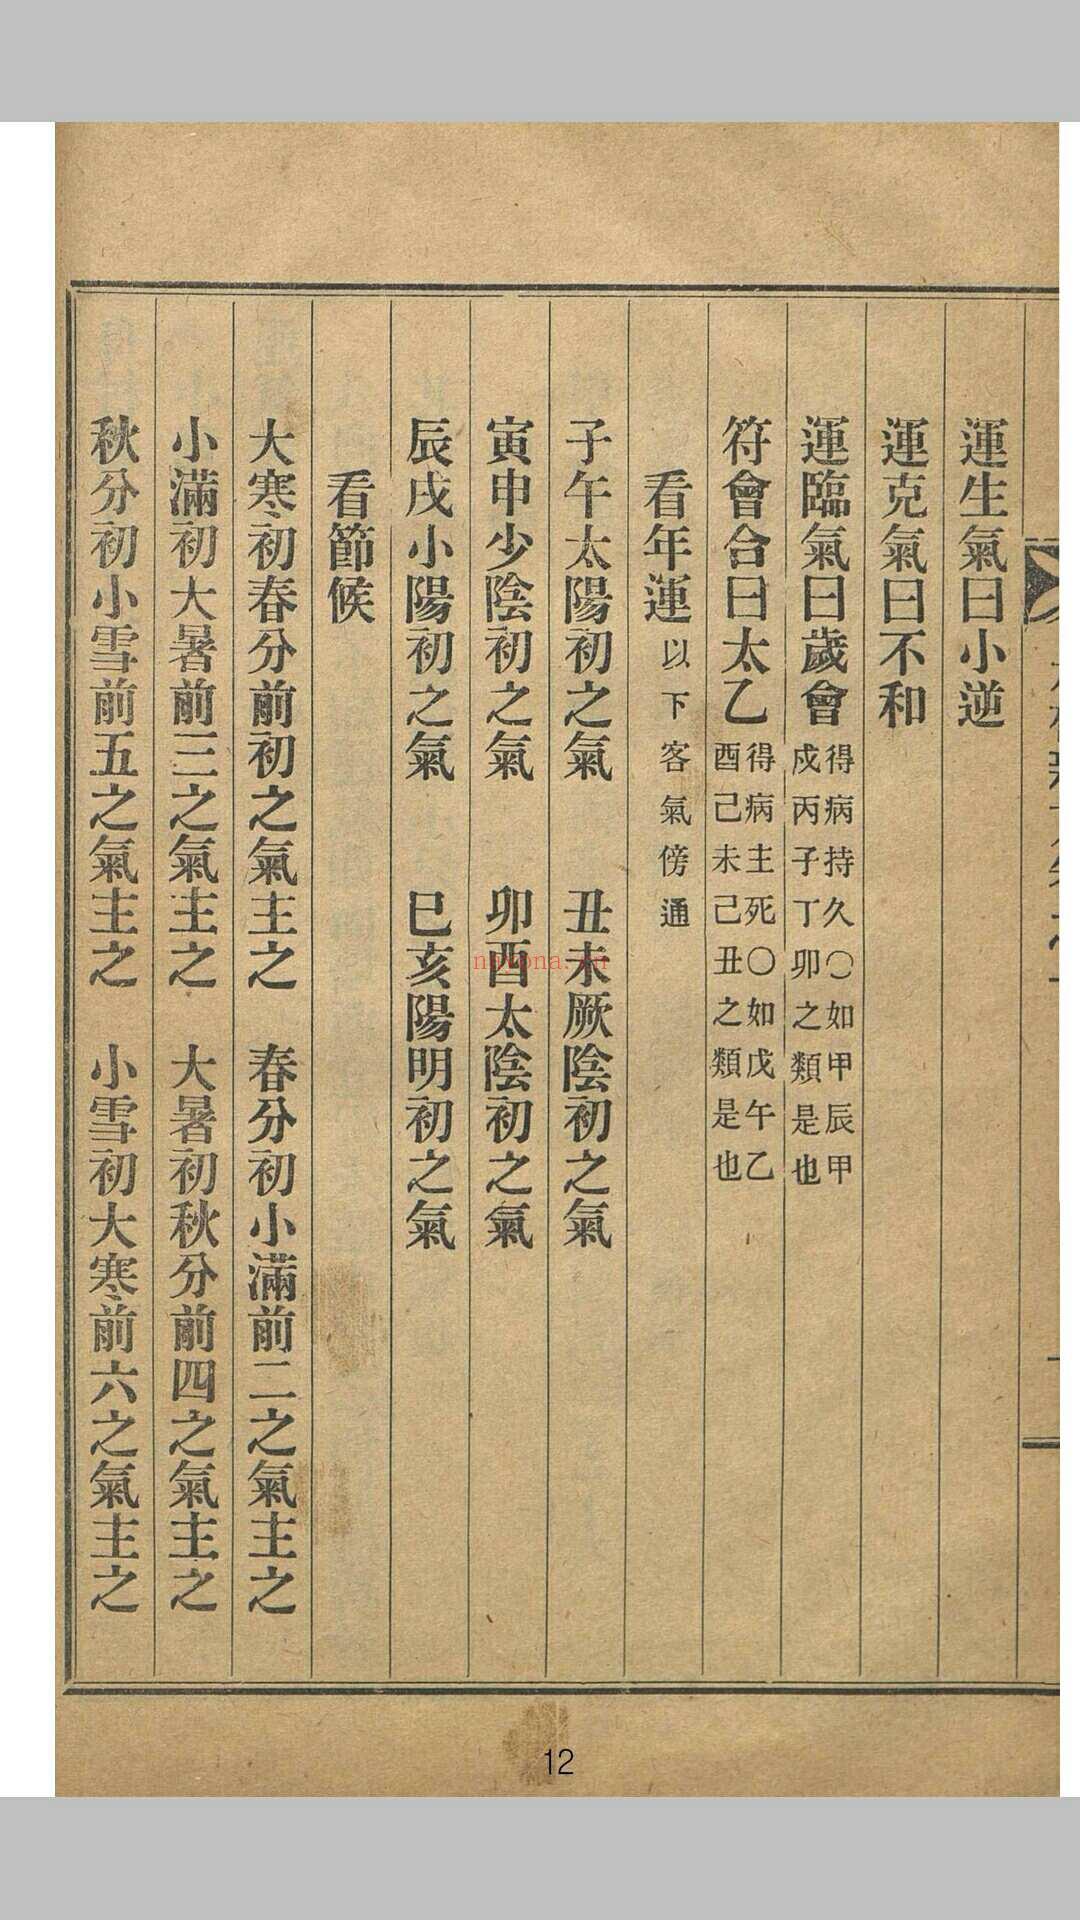 運生氣曰小逆
運克氣曰不和
運臨氣曰歲會 得病持久〇如甲辰甲戌丙子丁卯之類是也
符會合曰太乙 得病主死〇如戊午乙酉己未己丑之類是也
看年運 以下客氣傍通
子午太陽初之氣 丑未厥陰初之氣
寅申少陰初之氣 卯酉太陰初之氣
辰戌小陽初之氣 巳亥陽明初之氣
看節候
大寒初春分前初之氣主之 春分初小滿前二之氣主之
小滿初大暑前三之氣主之 大暑初秋分前四之氣主之
秋分初小雪前五之氣主之 小雪初大寒前六之氣主之
nayona.cn
12